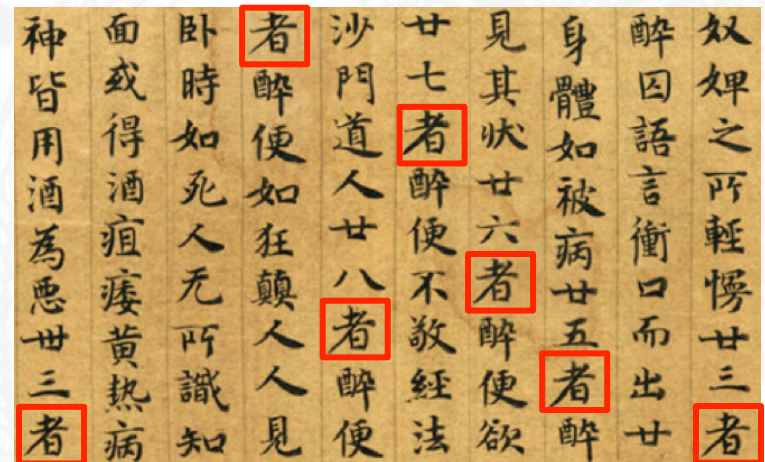 奴婢之所輕慢廿三者
醉囚語言衝口而出廿
身體如被病廿五者醉
見其狀廿六者醉便欲
廿七者醉便不敬經法
沙門道人廿八者醉便
者醉便如狂顛人人見
卧時如死人无所識知
面或得酒疽痿黄热病
神皆用酒為悪丗三者